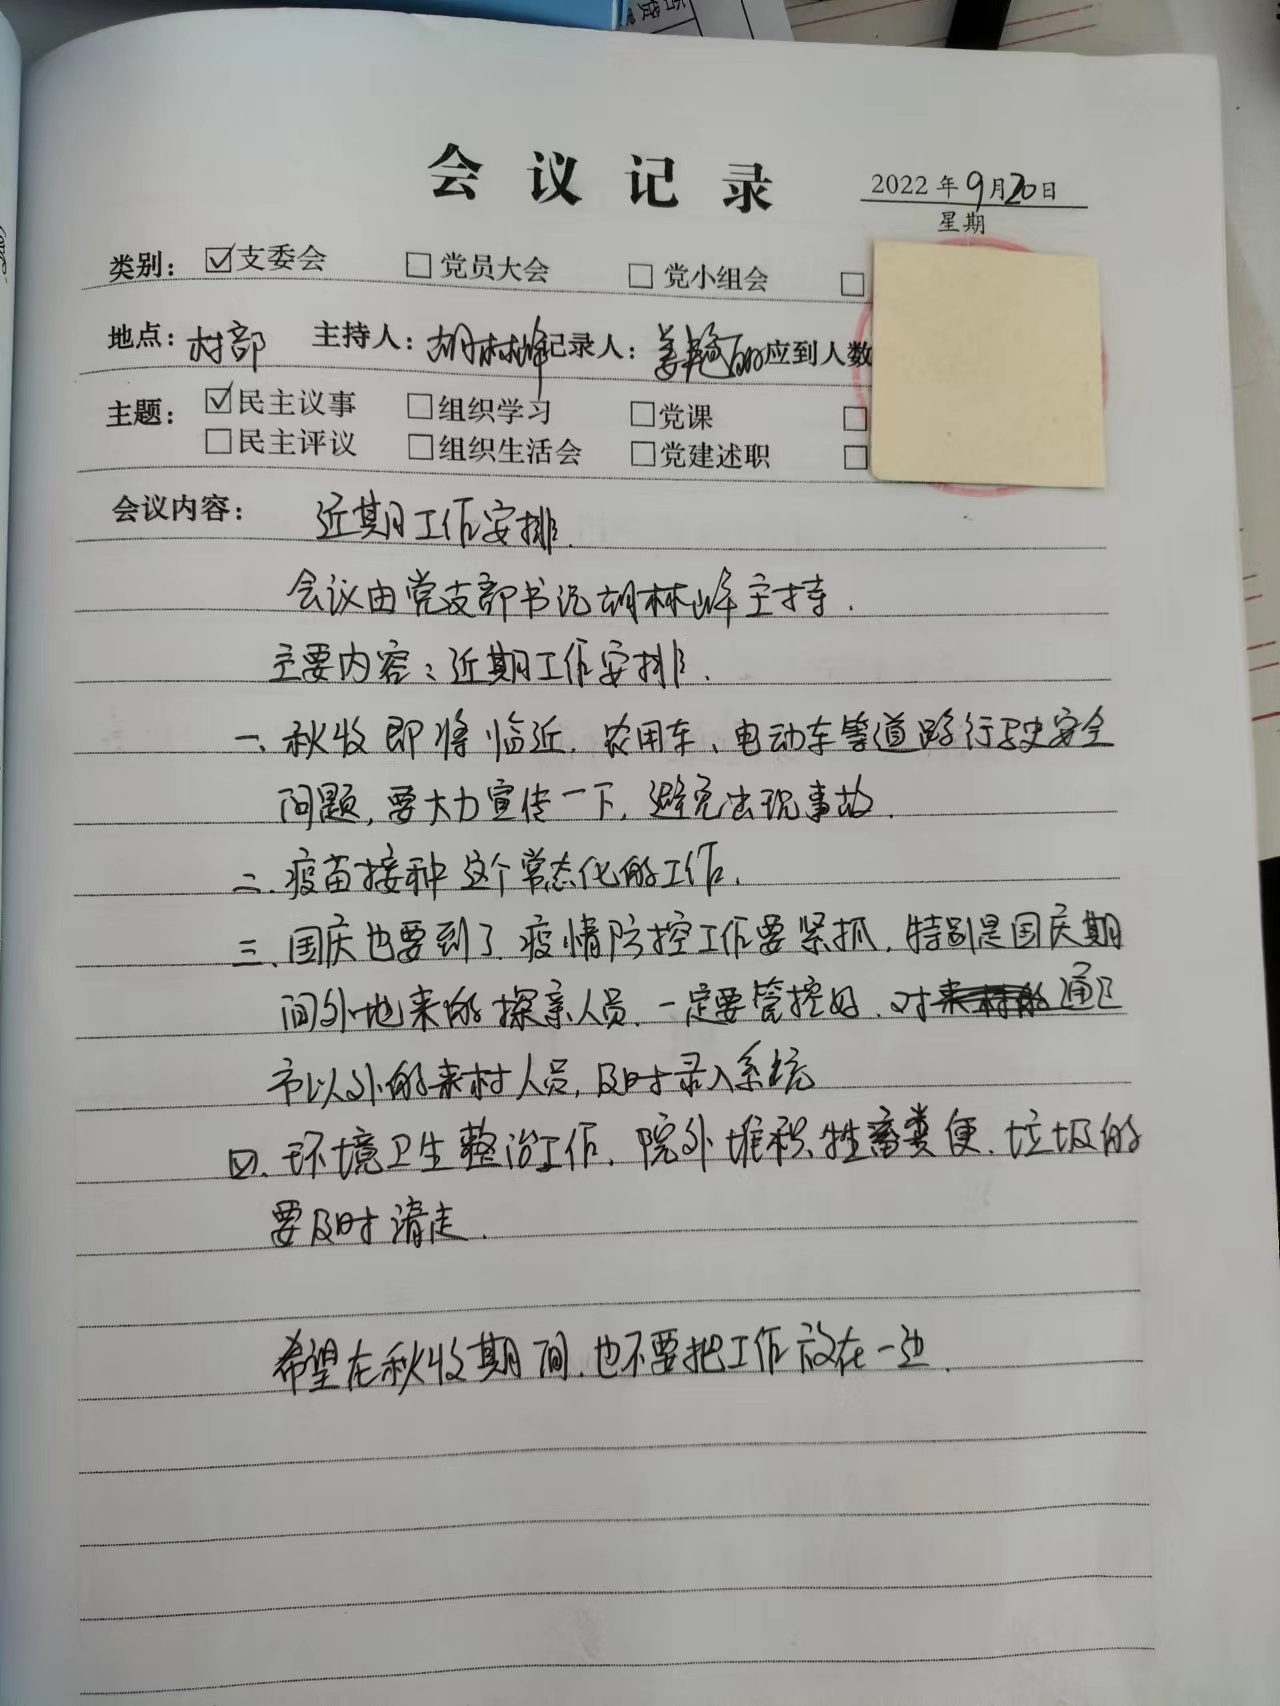 会议记录
2022年9月20日
星期
类别： ☑支委会 □党员大会 □党小组会 □
地点：村部 主持人：胡林峰 记录人：姜艳丽 应到人数
主题： ☑民主议事 □组织学习 □党课 □
□民主评议 □组织生活会 □党建述职 □
会议内容： 近期工作安排.
会议由党支部书记胡林峰主持.
主要内容：近期工作安排.
一、秋收即将临近.农用车、电动车等道路行驶安全
问题,要大力宣传一下,避免出现事故.
二.疫苗接种这个常态化的工作.
三、国庆也要到了.疫情防控工作要紧抓,特别是国庆期
间外地来的探亲人员,一定要管控好.对通辽
市以外的来村人员,及时录入系统
四.环境卫生整治工作,院外堆积牲畜粪便.垃圾的
要及时清走.
希望在秋收期间,也不要把工作放在一边.